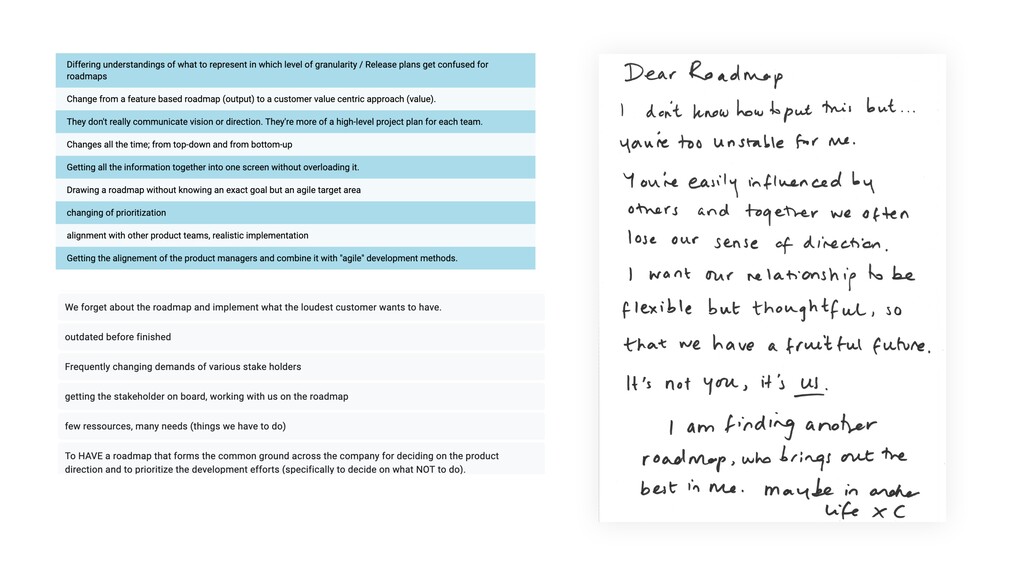 Differing understandings of what to represent in which level of granularity / Release plans get confused for
roadmaps
Change from a feature based roadmap (output) to a customer value centric approach (value).
They don't really communicate vision or direction. They're more of a high-level project plan for each team.
Changes all the time; from top-down and from bottom-up
Getting all the information together into one screen without overloading it.
Drawing a roadmap without knowing an exact goal but an agile target area
changing of prioritization
alignment with other product teams, realistic implementation
Getting the alignement of the product managers and combine it with "agile" development methods.
We forget about the roadmap and implement what the loudest customer wants to have.
outdated before finished
Frequently changing demands of various stake holders
getting the stakeholder on board, working with us on the roadmap
few ressources, many needs (things we have to do)
To HAVE a roadmap that forms the common ground across the company for deciding on the product
direction and to prioritize the development efforts (specifically to decide on what NOT to do).
Dear Roadmap
I don't know how to put this but...
you're too unstable for me.
You're easily influenced by
others and together we often
lose our sense of direction.
I want our relationship to be
flexible but thoughtful, so
that we have a fruitful future.
It's not you, it's us.
I am finding another
roadmap, who brings out the
best in me. maybe in another
life x C